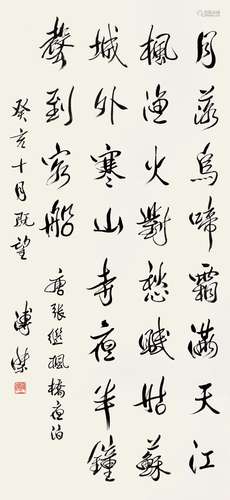 月落烏啼霜滿天江
楓漁火對愁眠姑蘇
城外寒山寺夜半鐘
聲到客船
唐張繼楓橋夜泊
癸亥十月既望
溥傑